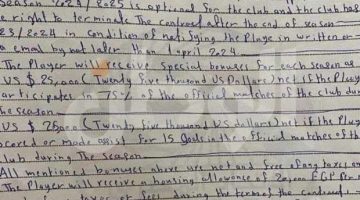 season 2024/2025 is optional for the club and the club has
right to terminate the contract after the end of season
23/2024 in condition of notifying the Player in written or
email by not later than 1 april 2024.
The Player will receive special bonuses for each season as
US $ 25,000 (Twenty five thousand US Dollars) net if the Player
articipates in 75% of the official matches of the club dur
the season.
US $ 25000 (Twenty five thousand US dollars) net if the Play
cored or made assist for 15 goals in the official matches of the
lub during The season
All mentioned bonuses above are net and free of any taxes or
The Player will receive a housing allowance of 20,000 EGP Per m
taxes or fees during the term of the contract